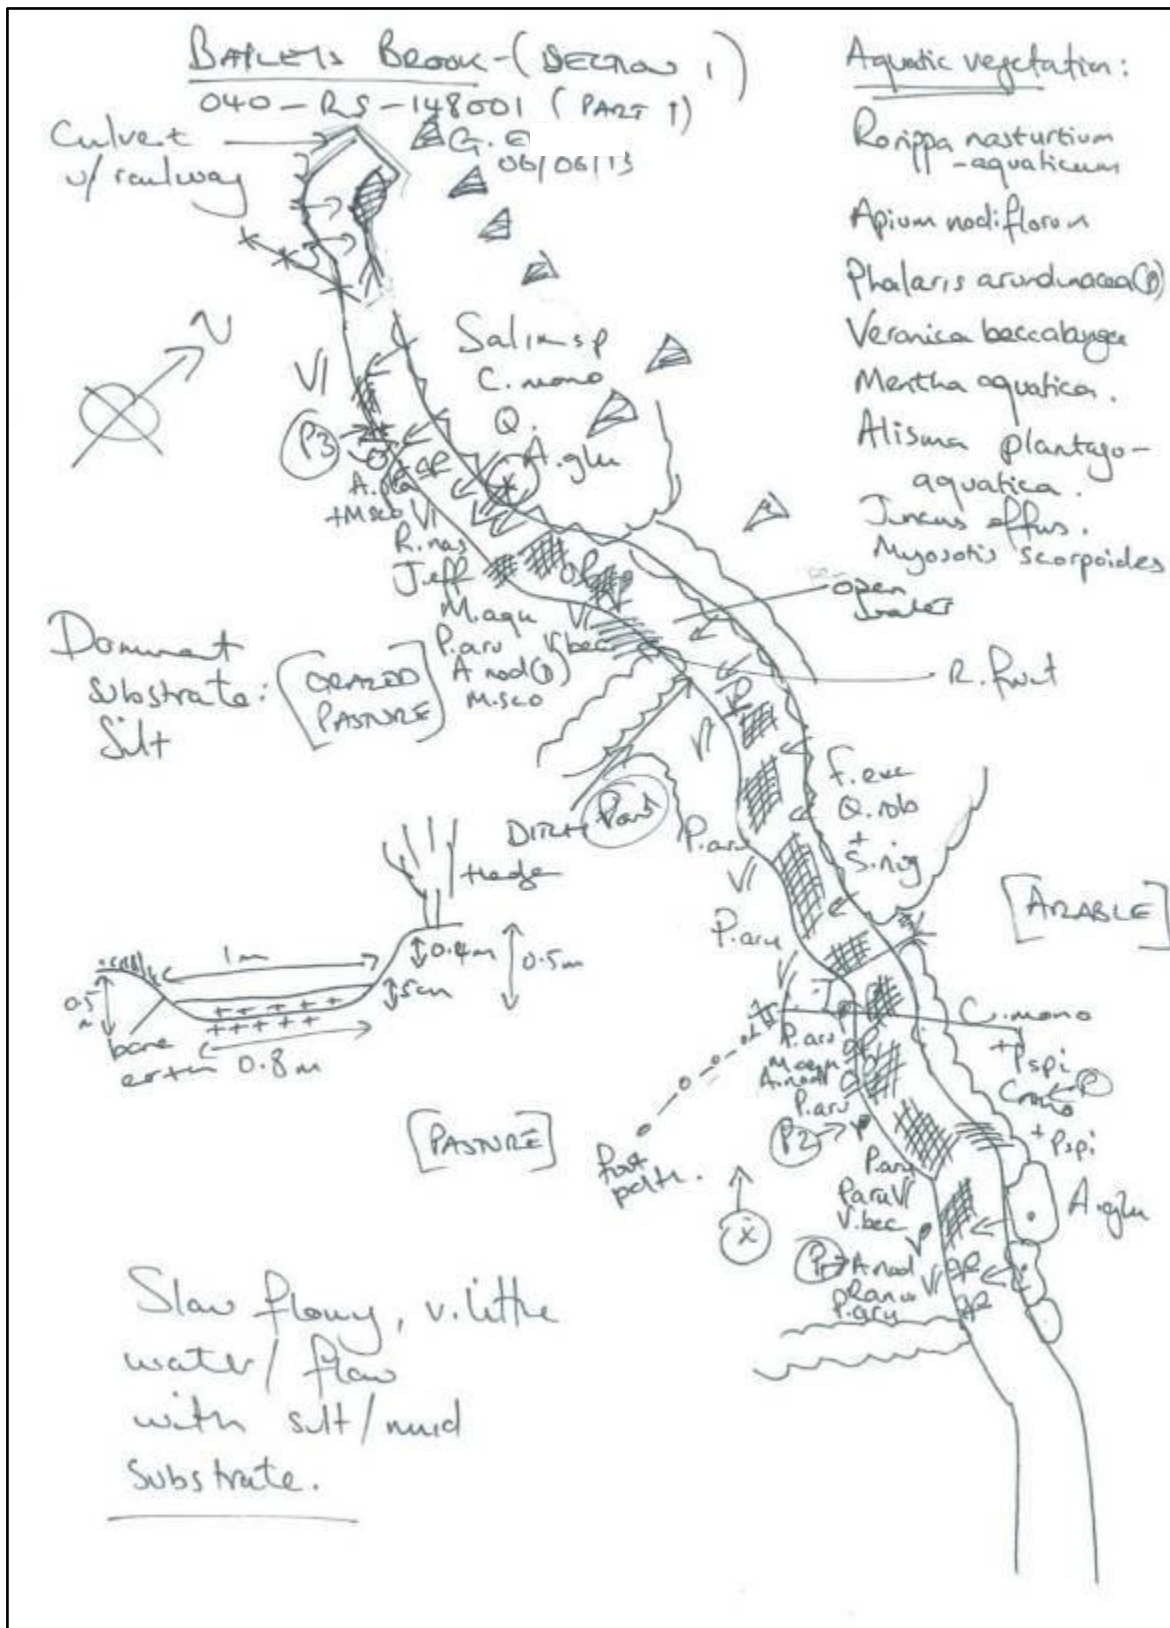 BAILEYS BROOK - (SECTION 1)
040-RS-148001 (PART 1)
G. E
06/06/13
Culvert
w/ railway
N
Aquatic vegetation:
Rorippa nasturtium
-aquaticum
Apium nodiflorum
Phalaris arundinacea (D)
Veronica beccabunga
Mentha aquatica.
Alisma plantago-
aquatica.
Juncus effus.
Myosotis scorpoides
Salix sp
C. mono
Q.
A. glu
VI
P3
+ M.sco VI
R. nas
J. eff
M. aqu
P. aru V. bec
A nod (D)
M. sco
open
water
R. fruit
Dominant
substrate:
Silt
[GRAZED
PASTURE]
DITCH
P. aru
P. aru
F. exc
Q. rob
+
S. nig
[ARABLE]
Hedge
1m
0.4m
0.5m
5cm
0.5
m
bare
earth
0.8m
C. mono
+ P spi
C mono
+ P spi
P. aru
M. aqu
A. nod
P. aru
P2
P. aru
P aru VI
V. bec
P1
A. nod
Ranu
P. aru
A. glu
[PASTURE]
foot
path.
X
Slow flowing, v. little
water / flow
with silt / mud
substrate.